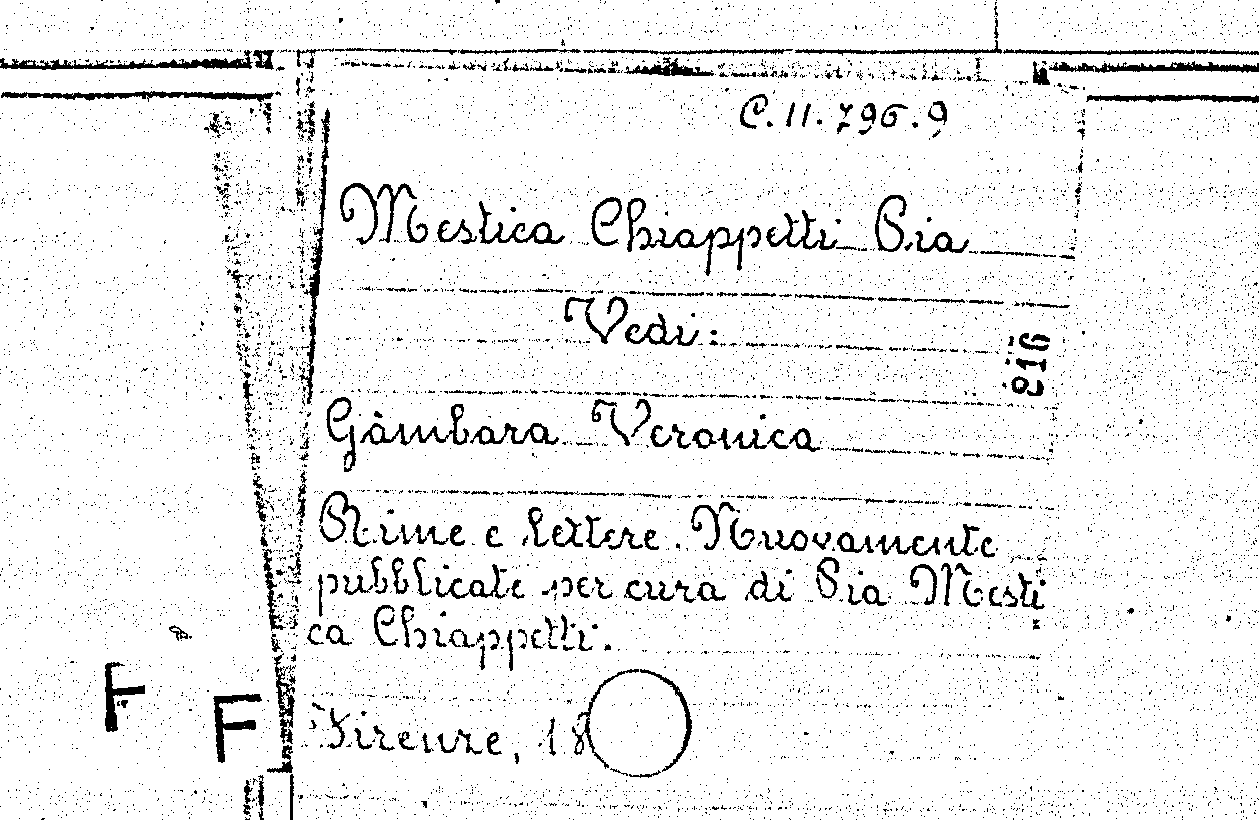 C.11.796.9
Mestica Chiappetti Pia
Vedi:
816
Gàmbara Veronica
Rime e lettere. Nuovamente
pubblicate per cura di Pia Mesti
ca Chiappetti.
F
F
Firenze, 18